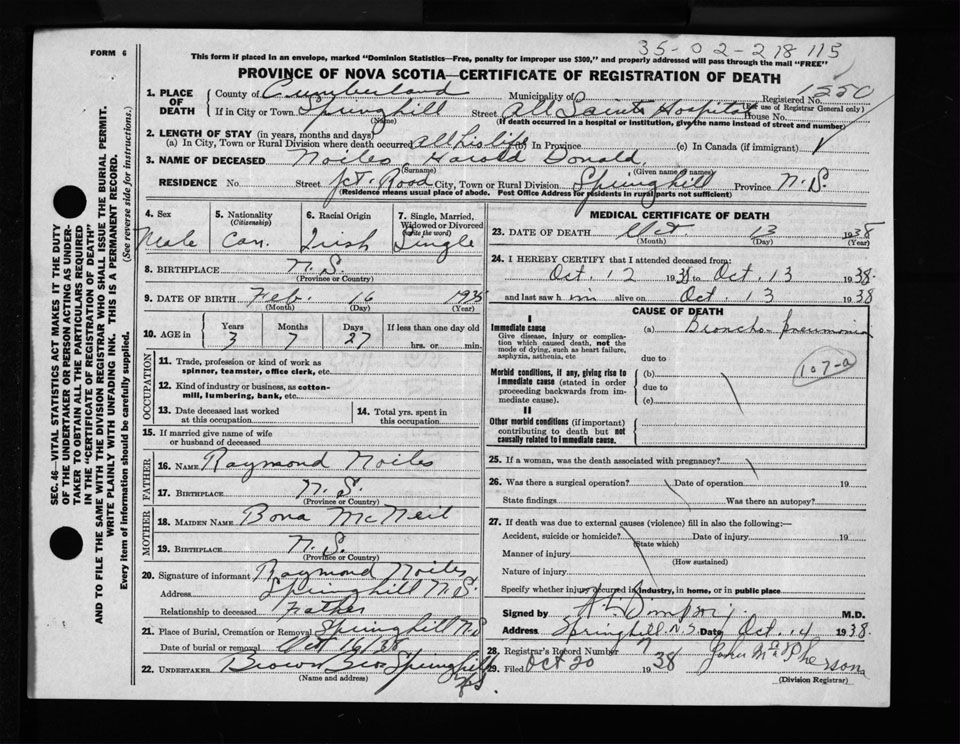 35-02-218115
FORM 6
This form if placed in an envelope, marked "Dominion Statistics—Free, penalty for improper use $300," and properly addressed will pass through the mail "FREE"
PROVINCE OF NOVA SCOTIA—CERTIFICATE OF REGISTRATION OF DEATH
SEC. 46—VITAL STATISTICS ACT MAKES IT THE DUTY
OF THE UNDERTAKER OR PERSON ACTING AS UNDER-
TAKER TO OBTAIN ALL THE PARTICULARS REQUIRED
IN THE "CERTIFICATE OF REGISTRATION OF DEATH"
AND TO FILE THE SAME WITH THE DIVISION REGISTRAR WHO SHALL ISSUE THE BURIAL PERMIT.
WRITE PLAINLY WITH UNFADING INK. THIS IS A PERMANENT RECORD.
Every item of information should be carefully supplied. (See reverse side for instructions.)
1. PLACE OF DEATH
County of Cumberland Municipality of Registered No. 1220
(For use of Registrar General only)
If in City or Town Springhill Street All Saints Hospital House No.
(Name) (If death occurred in a hospital or institution, give the name instead of street and number)
2. LENGTH OF STAY (in years, months and days)
(a) In City, Town or Rural Division where death occurred all his life (b) In Province (c) In Canada (if immigrant)
3. NAME OF DECEASED Noiles, Harold Donald
(Surname) (Given name or names)
RESIDENCE No. Street Jct. Road City, Town or Rural Division Springhill Province N.S.
(Residence means usual place of abode. Post Office Address for residents in rural parts not sufficient)
4. Sex Male
5. Nationality (Citizenship) Can.
6. Racial Origin Irish
7. Single, Married, Widowed or Divorced (Write the word) Single
8. BIRTHPLACE N.S.
(Province or Country)
9. DATE OF BIRTH Feb. 16 1935
(Month) (Day) (Year)
10. AGE in Years 3 Months 7 Days 27 If less than one day old hrs. or min.
OCCUPATION
11. Trade, profession or kind of work as spinner, teamster, office clerk, etc.
12. Kind of industry or business, as cotton-mill, lumbering, bank, etc.
13. Date deceased last worked at this occupation
14. Total yrs. spent in this occupation
15. If married give name of wife or husband of deceased
FATHER
16. NAME Raymond Noiles
17. BIRTHPLACE N.S.
(Province or Country)
MOTHER
18. MAIDEN NAME Bona McNeil
19. BIRTHPLACE N.S.
(Province or Country)
20. Signature of informant Raymond Noiles
Address Springhill N.S.
Relationship to deceased Father
21. Place of Burial, Cremation or Removal Springhill N.S
Date of burial or removal Oct 16/38
22. UNDERTAKER Brown Bros Springhill
N.S.
(Name and address)
MEDICAL CERTIFICATE OF DEATH
23. DATE OF DEATH Oct 13 1938
(Month) (Day) (Year)
24. I HEREBY CERTIFY that I attended deceased from:
Oct. 12 1938 to Oct. 13 1938.
and last saw him alive on Oct. 13 1938
CAUSE OF DEATH
I
Immediate cause
Give disease, injury or complication which caused death, not the mode of dying, such as heart failure, asphyxia, asthenia, etc
(a) Broncho pneumonia
due to
107-a
Morbid conditions, if any, giving rise to immediate cause (stated in order proceeding backwards from immediate cause).
(b)
due to
(c)
II
Other morbid conditions (if important) contributing to death but not causally related to immediate cause.
25. If a woman, was the death associated with pregnancy?
26. Was there a surgical operation? Date of operation 19
State findings Was there an autopsy?
27. If death was due to external causes (violence) fill in also the following:—
Accident, suicide or homicide? Date of injury 19
(State which)
Manner of injury
(How sustained)
Nature of injury
Specify whether injury occurred in industry, in home, or in public place
Signed by M.D.
Address Springhill N.S. Date Oct. 14 1938.
28. Registrar's Record Number 7
29. Filed Oct 20 1938 McPherson
(Division Registrar)